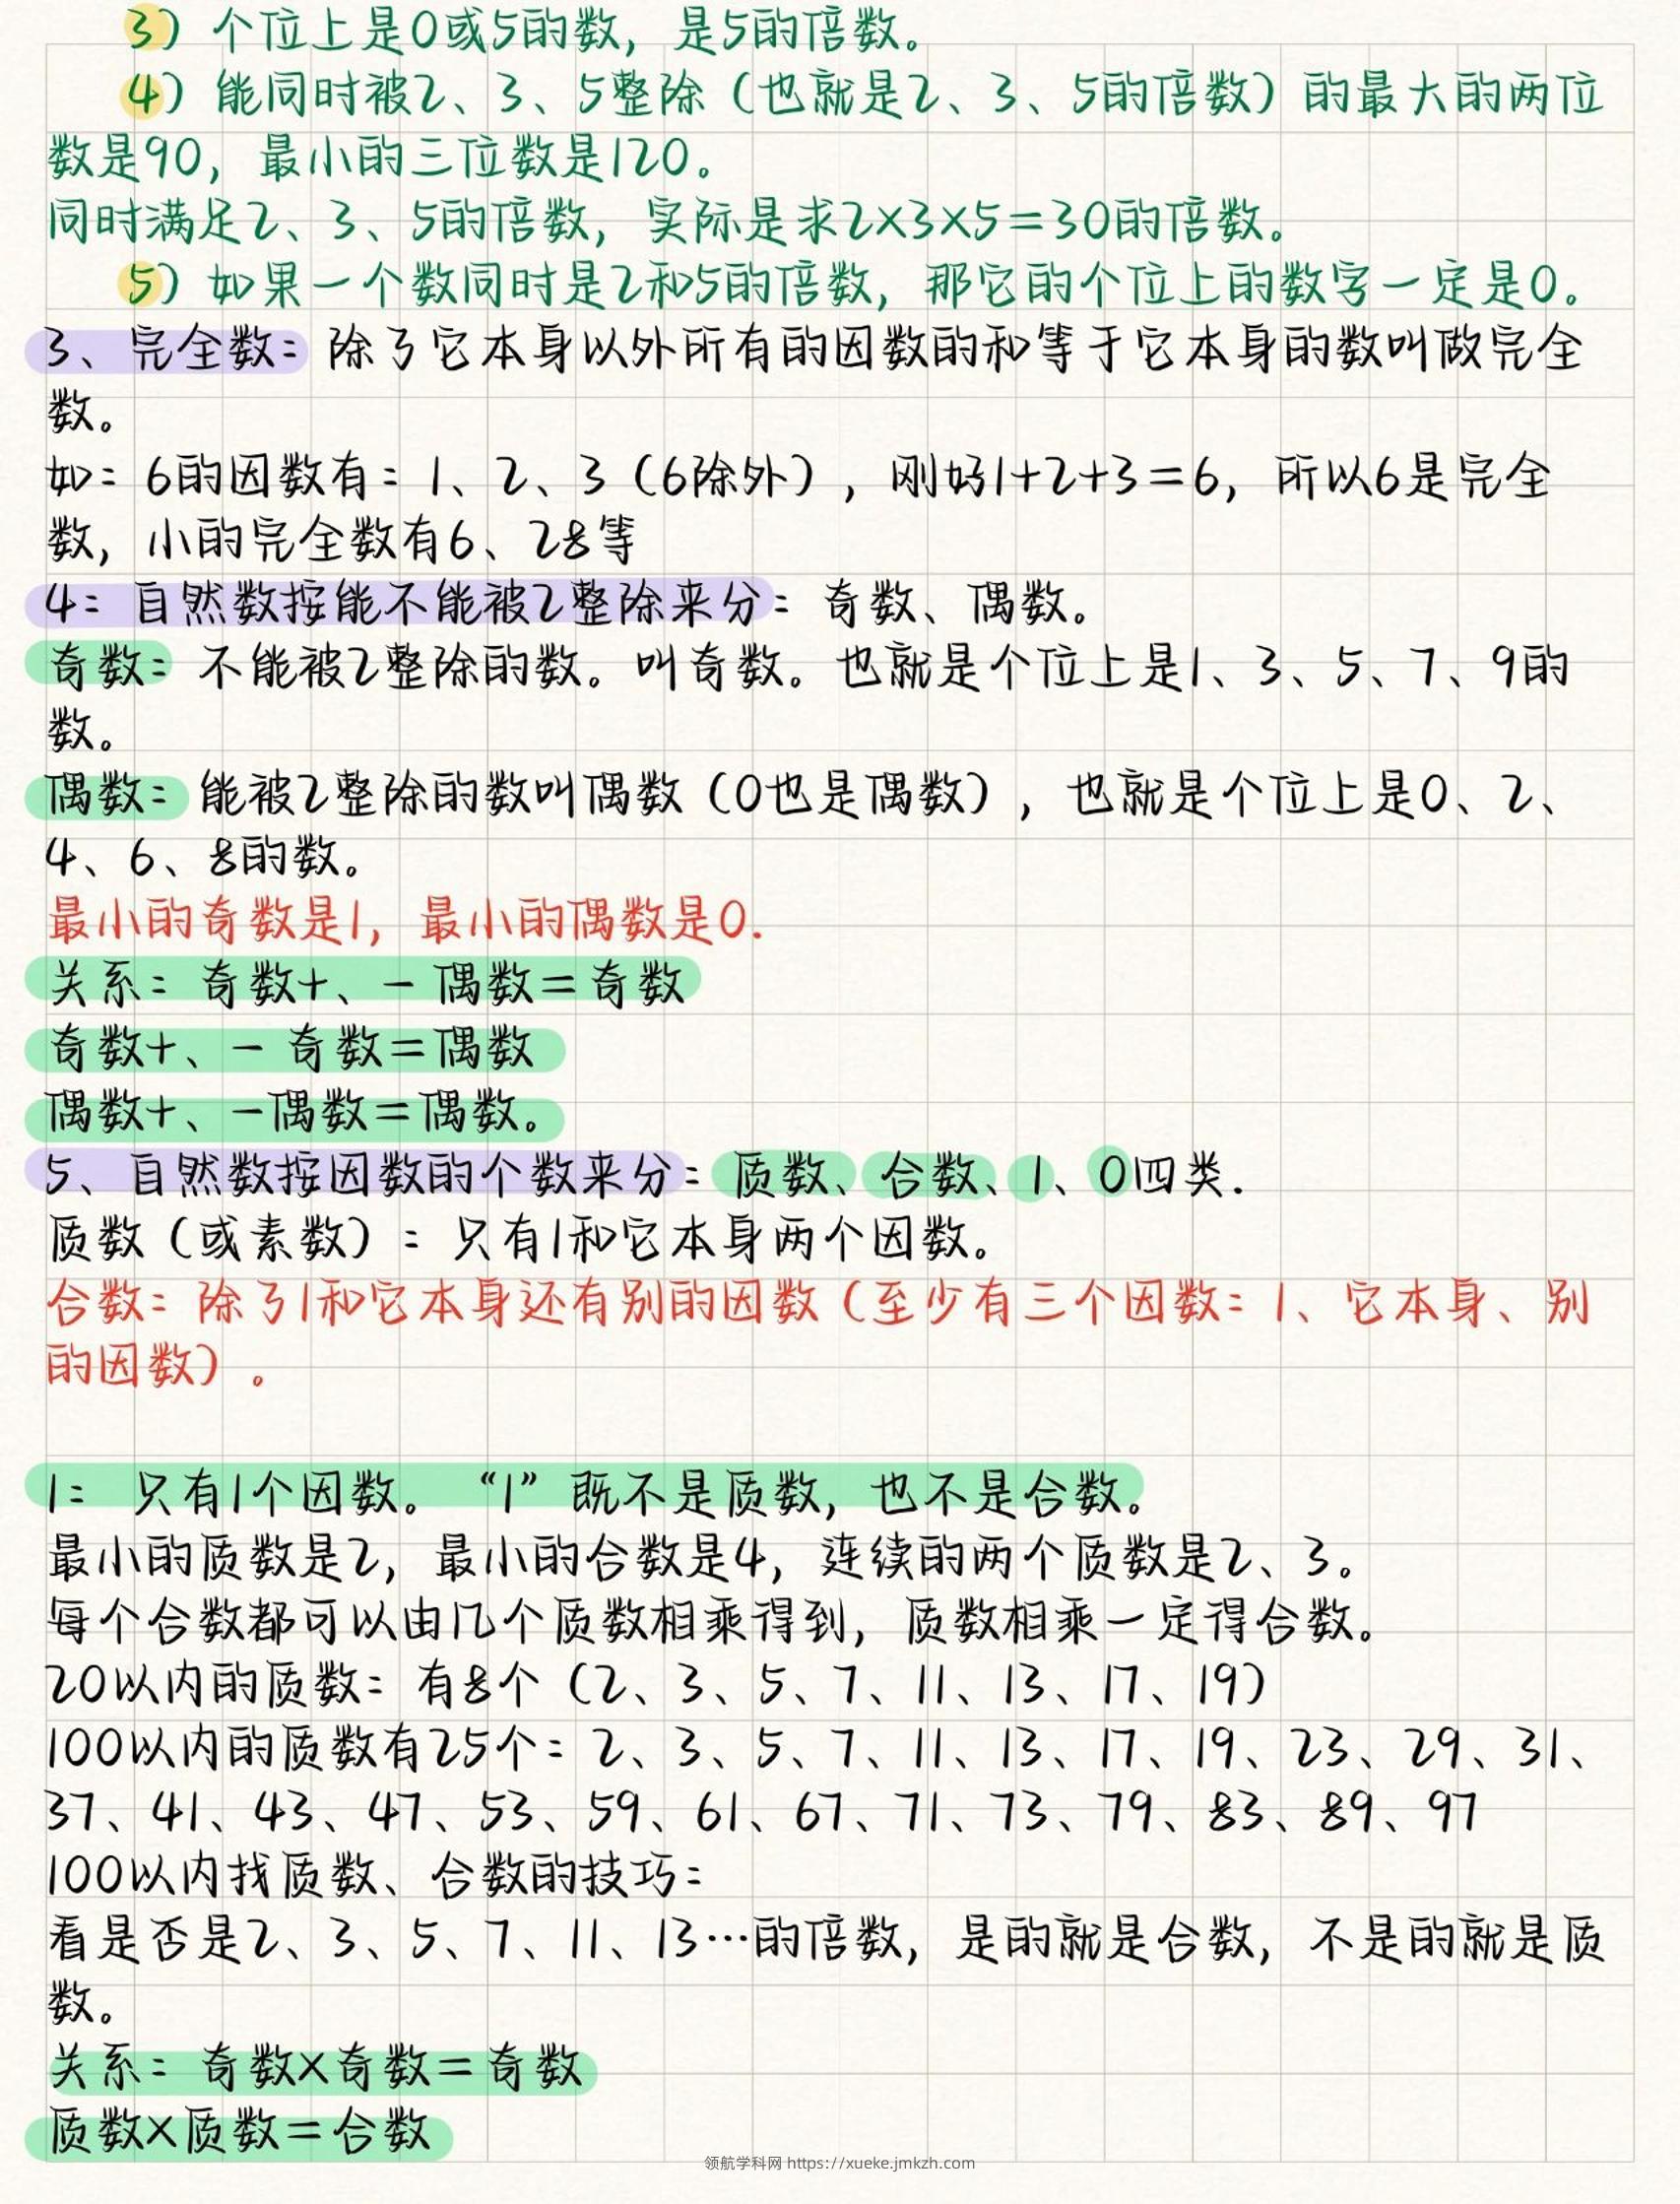 3）个位上是0或5的数，是5的倍数。
4）能同时被2、3、5整除（也就是2、3、5的倍数）的最大的两位
数是90，最小的三位数是120。
同时满足2、3、5的倍数，实际是求2×3×5=30的倍数。
5）如果一个数同时是2和5的倍数，那它的个位上的数字一定是0。
3、完全数：除了它本身以外所有的因数的和等于它本身的数叫做完全
数。
如：6的因数有：1、2、3（6除外），刚好1+2+3=6，所以6是完全
数，小的完全数有6、28等
4：自然数按能不能被2整除来分：奇数、偶数。
奇数：不能被2整除的数。叫奇数。也就是个位上是1、3、5、7、9的
数。
偶数：能被2整除的数叫偶数（0也是偶数），也就是个位上是0、2、
4、6、8的数。
最小的奇数是1，最小的偶数是0.
关系：奇数+、- 偶数=奇数
奇数+、- 奇数=偶数
偶数+、-偶数=偶数。
5、自然数按因数的个数来分：质数、合数、1、0四类.
质数（或素数）：只有1和它本身两个因数。
合数：除了1和它本身还有别的因数（至少有三个因数：1、它本身、别
的因数）。
1： 只有1个因数。“1”既不是质数，也不是合数。
最小的质数是2，最小的合数是4，连续的两个质数是2、3。
每个合数都可以由几个质数相乘得到，质数相乘一定得合数。
20以内的质数：有8个（2、3、5、7、11、13、17、19）
100以内的质数有25个：2、3、5、7、11、13、17、19、23、29、31、
37、41、43、47、53、59、61、67、71、73、79、83、89、97
100以内找质数、合数的技巧：
看是否是2、3、5、7、11、13…的倍数，是的就是合数，不是的就是质
数。
关系：奇数×奇数=奇数
质数×质数=合数
领航学科网 https://xueke.jmkzh.com